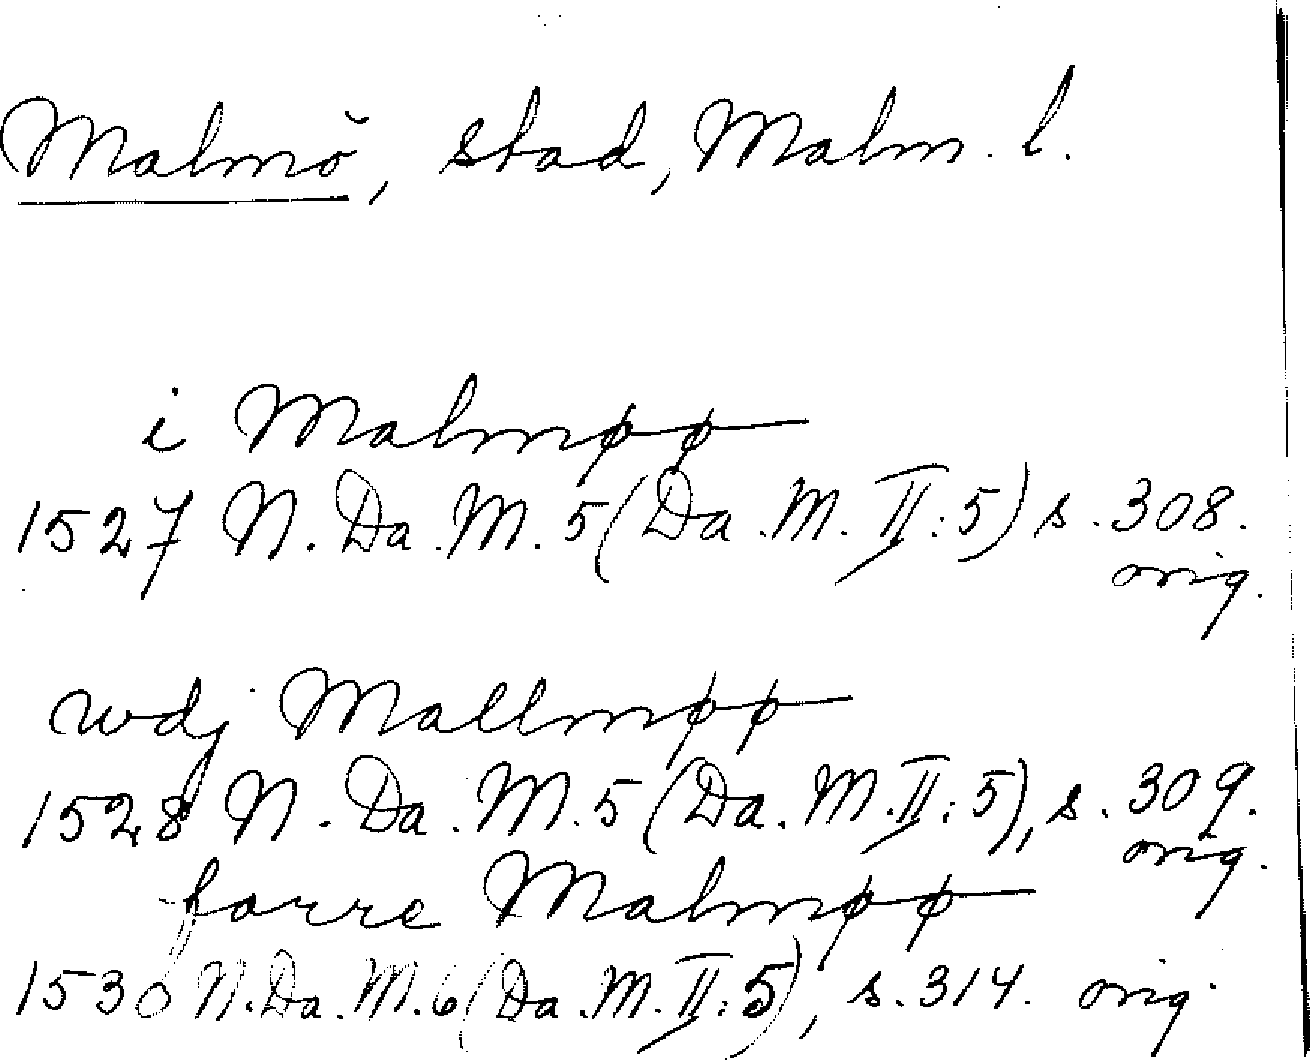 Malmö, stad, Malm. l.
i Malmøø
1527 N. Da. M. 5 (Da. M. II:5) s. 308.
orig.
wdj Mallmøø
1528 N. Da. M. 5 (Da. M. II:5), s. 309.
orig.
farre Malmøø
1530 N. Da. M. 6 (Da. M. II:5), s. 314. orig.